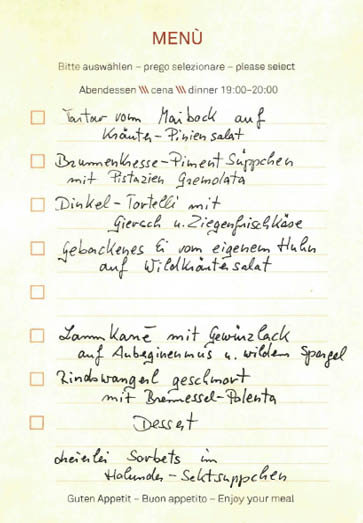 MENÙ
Bitte auswählen – prego selezionare – please select
Abendessen \\\ cena \\\ dinner 19:00–20:00
Tartar vom Maibock auf
Kräuter-Piniensalat
Brunnenkresse-Piment Süppchen
mit Pistazien Gremolata
Dinkel-Tortelli mit
Giersch u. Ziegenfrischkäse
Gebackenes Ei vom eigenem Huhn
auf Wildkräutersalat
Lamm Karré mit Gewürzlack
auf Aubeginenmus u. wildem Spargel
Rindswangerl geschmort
mit Brennessel-Polenta
Dessert
dreierlei Sorbets im
Holunder-Sektsüppchen
Guten Appetit – Buon appetito – Enjoy your meal